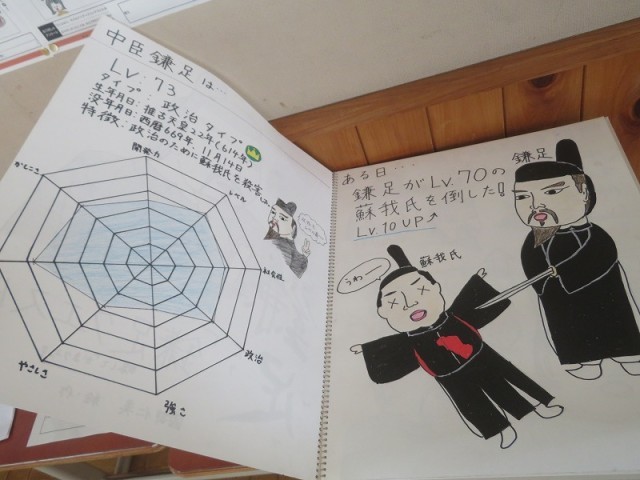 中臣鎌足は…
LV. 73
タイプ: 政治タイプ
生年月日: 推古天皇22年(614年)
没年月日: 西暦669年 11月14日
特徴: 政治のために蘇我氏を殺害
開発力
レベル
政治
強さ
やさしさ
かしこさ
ある日…
鎌足がLv.70の
蘇我氏を倒した!
Lv.10 UP↑
鎌足
蘇我氏
うわー